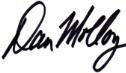 Dan Molloy